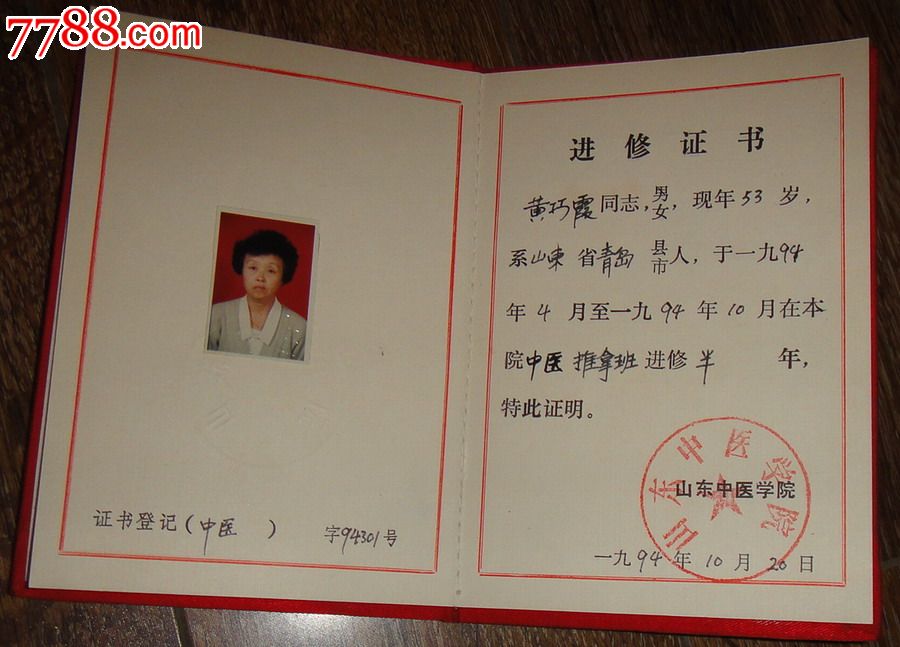 7788.com
证书登记(中医 ) 字94301号
进修证书
黄巧霞同志,男女,现年53岁,
系山东省青岛县市人,于一九94
年4月至一九94年10月在本
院中医推拿班进修半 年,
特此证明。
山东中医学院
山东中医学院
一九94年10月20日